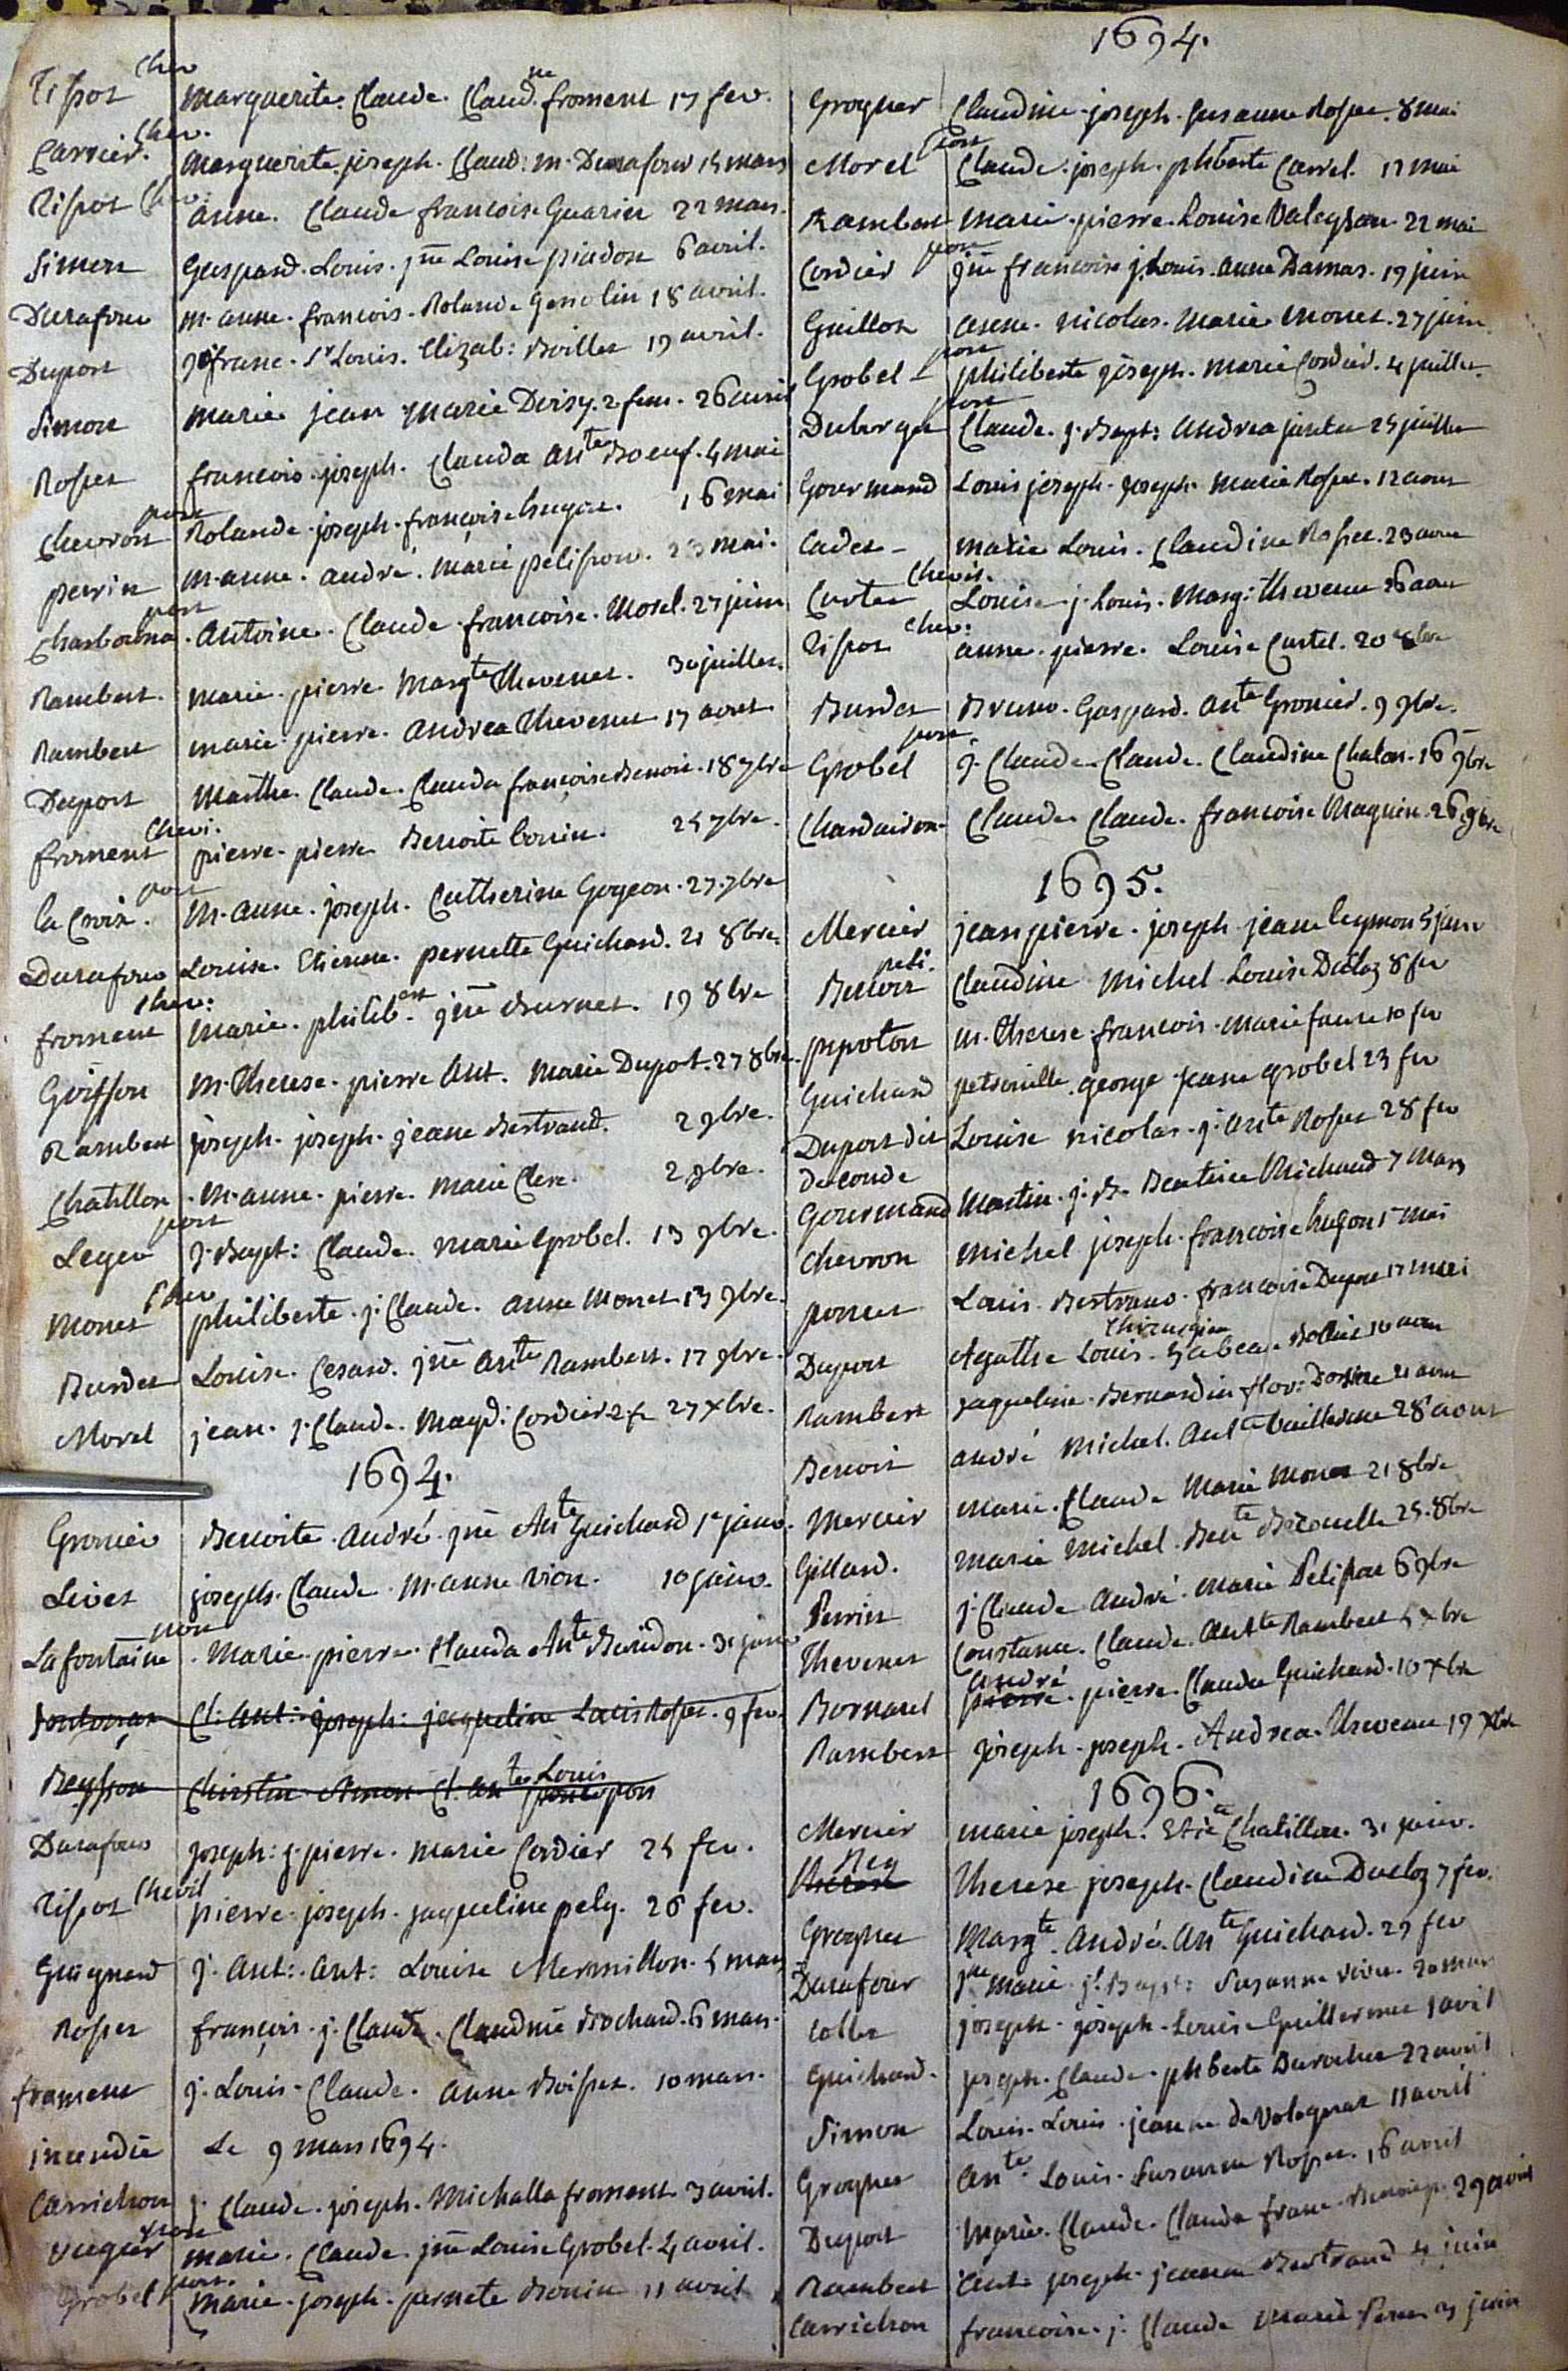 Rispot Chev marguerite. Claude. Claud.ne froment 17 fev.
Carrier. Chev. marguerite joseph. Claud: m. Durafour 15 mars
Rispot Chev: anne. Claude francoise Guarin 22 mars.
Simon Gaspard. Louis. jne Louise piadon 6 avril.
Durafour m. anne. francois. Rolande Gonolin 18 avril.
Duport franc. Sr Louis. Elizab: Boillet 19 avril.
Simon marie jean marie Doisy. 2 fem. 26 avril
Rosset francois. joseph. Clauda Ante Boeuf. 4 mai
Chevron port Rolande. joseph. françoise hugon. 16 mai
perrin m. anne. andré. marie pelisson. 23 mai.
Charbona port Antoine. Claude. francoise. Morel. 27 juin
Rambert. marie. pierre. Margte Thevenet. 30 juillet.
Rambert marie. pierre. Andrea Thevenet 17 aout
Duport Marthe. Claude. Clauda françoise Benoit. 18 7bre
froment Chevi. pierre. pierre Benoite bonin. 25 7bre.
la Croix. port m. anne. joseph. Catherine Gogeon. 27. 7bre
Durafour Louise. Etienne. pernette Guichard. 21 8bre.
froment Chev: marie. philib.ert jne Burnet. 19 8bre
Goiffon m. Therese. pierre Ant. Marie Dupot. 27 8bre.
Rambert joseph. joseph. jeane Bertrand. 2 9bre.
Chatillon m. anne. pierre. marie Clerc. 2 9bre.
Leger port j. Bapt: Claude. marie Grobel. 13 9bre.
Monet Chev philiberte. j. Claude. anne Monet 13 9bre.
Burdet Louise. Cesar. jne Ante Rambert. 17 9bre.
Morel jean. j. Claude. Magd: Cordier 2 f. 27 Xbre.
1694.
Gronier Benoite. André. jne Ante Guichard 1r janv.
Livet joseph. Claude. M. anne Vion. 10 janv.
Lafontaine port Marie. pierre. Clauda Ante Baridon. 31 janv
Cl. Ant: joseph: jaqueline Rosset. 9 fev.
Beysson Cl. Ante Louis
Durafour joseph: j. pierre. marie Cordier 25 fev.
Rispot Chevil pierre. joseph. jaqueline pely. 26 fev.
Guignard j. Ant: Ant: Louise Mermillon. 5 mars
Rosset françois. j. Claude. Claudine Brochard. 6 mars.
froment j. Louis. Claude. anne Boisset. 10 mars.
incendie Le 9 mars 1694.
Carrichon j. Claude. joseph. Michalla froment 3 avril.
Vuguer port marie. Claude. jne Louise Grobel. 4 avril.
Grobel port. Marie. joseph. pernete Bonin 11 avril
1694.
Grognet Claudine. joseph. Susanne Rosset. 8 mai
Morel port Claude. joseph. phberte Carrel. 17 mai
Rambert marie. pierre. Louise Valeyson. 22 mai
Cordier port jne francoise j. Louis. anne Damas. 19 juin
Guillot anne. nicolas. marie monet. 27 juin
Grobel port philiberte joseph. marie Cordier. 4 juillet
Duberger port Claude. j. Bapt: Andrea 25 juillet
Gourmand Louis joseph. joseph. marie Rosset. 12 aout
Cadet marie Louis. Claudine Rosset. 23 aout
Curtet Chevil. Louise j. Louis. Marg: Thevenet 26 aout
Rispot Chev: anne. pierre. Louise Curtel. 20 8bre
Burdet Bruno. Gaspard. Ante Gronier. 9 9bre.
Grobel port j. Claude. Claude. Claudine Chalon. 16 9bre
Chardaidon Claude. Claude. francoise Maguin. 26 9bre
1695.
Mercier jean pierre. joseph jeane leymon 5 janv
Benoit peti. Claudine Michel Louise Dutloz 8 fev
pipoton m. Therese. francois. marie faure 10 fev
Guichard petronille george jeane grobel 23 fev
Duport dit de conde Louise nicolas. j. Ante Rosset 28 fev
Gourmand Martin. j. B. Beatrice Michaud 7 mars
Chevron Michel joseph. francoise hugon 5 mai
poncet Louis Bertrand. francoise Duport 17 mai
Duport Agathe Louis Chirurgien Isabeau Bolliet 10 aout
Rambert jaqueline. Bernardin flor: 21 aout
Benoit andré Michel. Ante 28 aout
Mercier marie. Claude Marie Monet 21 8bre
Gillard. marie Michel. Bente 25. 8bre
Perrin j. Claude André. Marie Pelisson 6 9bre
Thevenet Constance. Claude. Ante Rambert 5 Xbre
Bornarel andré pierre. pierre. Clauda Guichard. 10 Xbre
Rambert joseph. joseph. Andrea. Theveau 19 Xbre
1696.
Mercier marie joseph. Etie Chatillon. 31 janv.
Therese Rey Therese joseph. Claudine Ducloz 7 fev.
Grognet Margte. André. Ante Guichard. 29 fev
Durafour jne marie. j. Bapt: Susanne vivier. 20 mars
Collet joseph. joseph. Louise Guillermet 1 avril
Guichard. joseph. Claude. phberte Durochat 22 avril
Simon Louis. Louis. jeanne de Valognat 11 avril
Grognet Ante. Louis. Susanne Rosset. 16 avril
Duport Marie. Claude. Clauda franc. 29 avril
Rambert Ant: joseph. jeanne Bertrand 4 juin
Carrichon francoise. j. Claude Marie juin